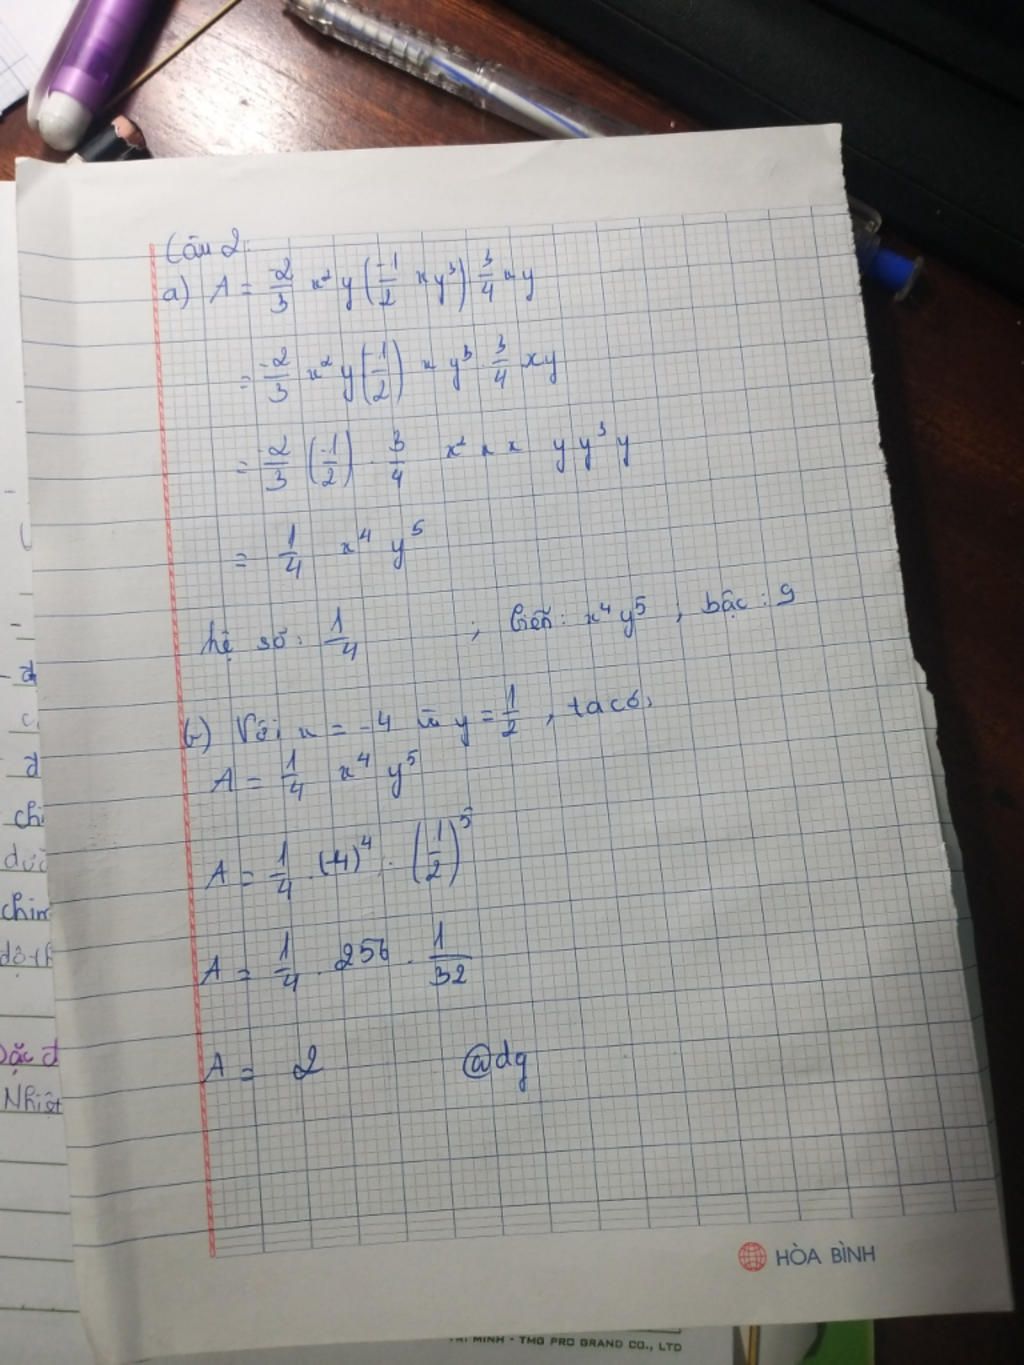 Câu 2:
a) A = -2/3 x² y (-1/2 x y³) 3/4 x y
= -2/3 x² y (-1/2) x y³ . 3/4 x y
= -2/3 (-1/2) . 3/4 x² x x y y³ y
= 1/4 x⁴ y⁵
hệ số: 1/4 ; biến: x⁴ y⁵ , bậc : 9
b) Với x = -4 và y = 1/2 , ta có:
A = 1/4 x⁴ y⁵
A = 1/4 . (-4)⁴ . (1/2)⁵
A = 1/4 . 256 . 1/32
A = 2 @dg
HÒA BÌNH
TRÍ MINH - TMG PRO GRAND CO., LTD
chi
chim
Nhiệt